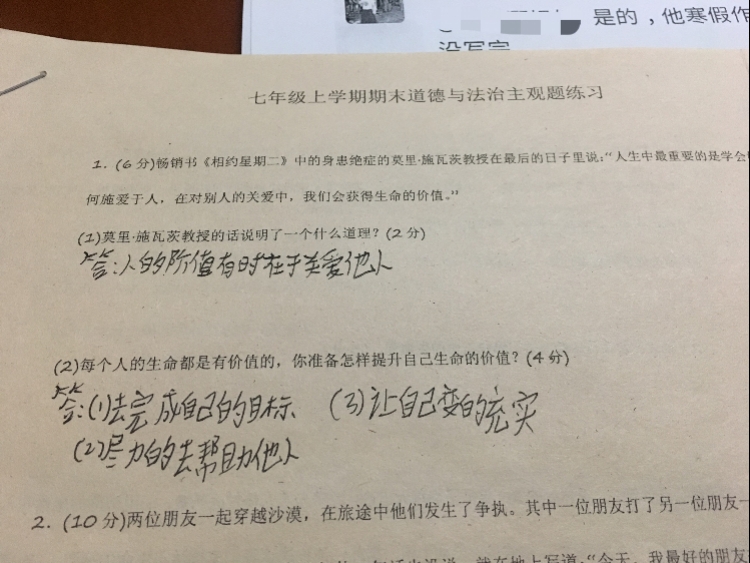 是的，他寒假作
没写完
七年级上学期期末道德与法治主观题练习
1. (6分)畅销书《相约星期二》中的身患绝症的莫里·施瓦茨教授在最后的日子里说:“人生中最重要的是学会
何施爱于人，在对别人的关爱中，我们会获得生命的价值。”
(1)莫里·施瓦茨教授的话说明了一个什么道理？(2分)
答:人的价值有时在于关爱他人
(2)每个人的生命都是有价值的，你准备怎样提升自己生命的价值？(4分)
答:(1)去完成自己的目标、 (3)让自己变的充实
(2)尽力的去帮助他人
2. (10分)两位朋友一起穿越沙漠，在旅途中他们发生了争执。其中一位朋友打了另一位朋友一
就在地上写道:“今天，我最好的朋友